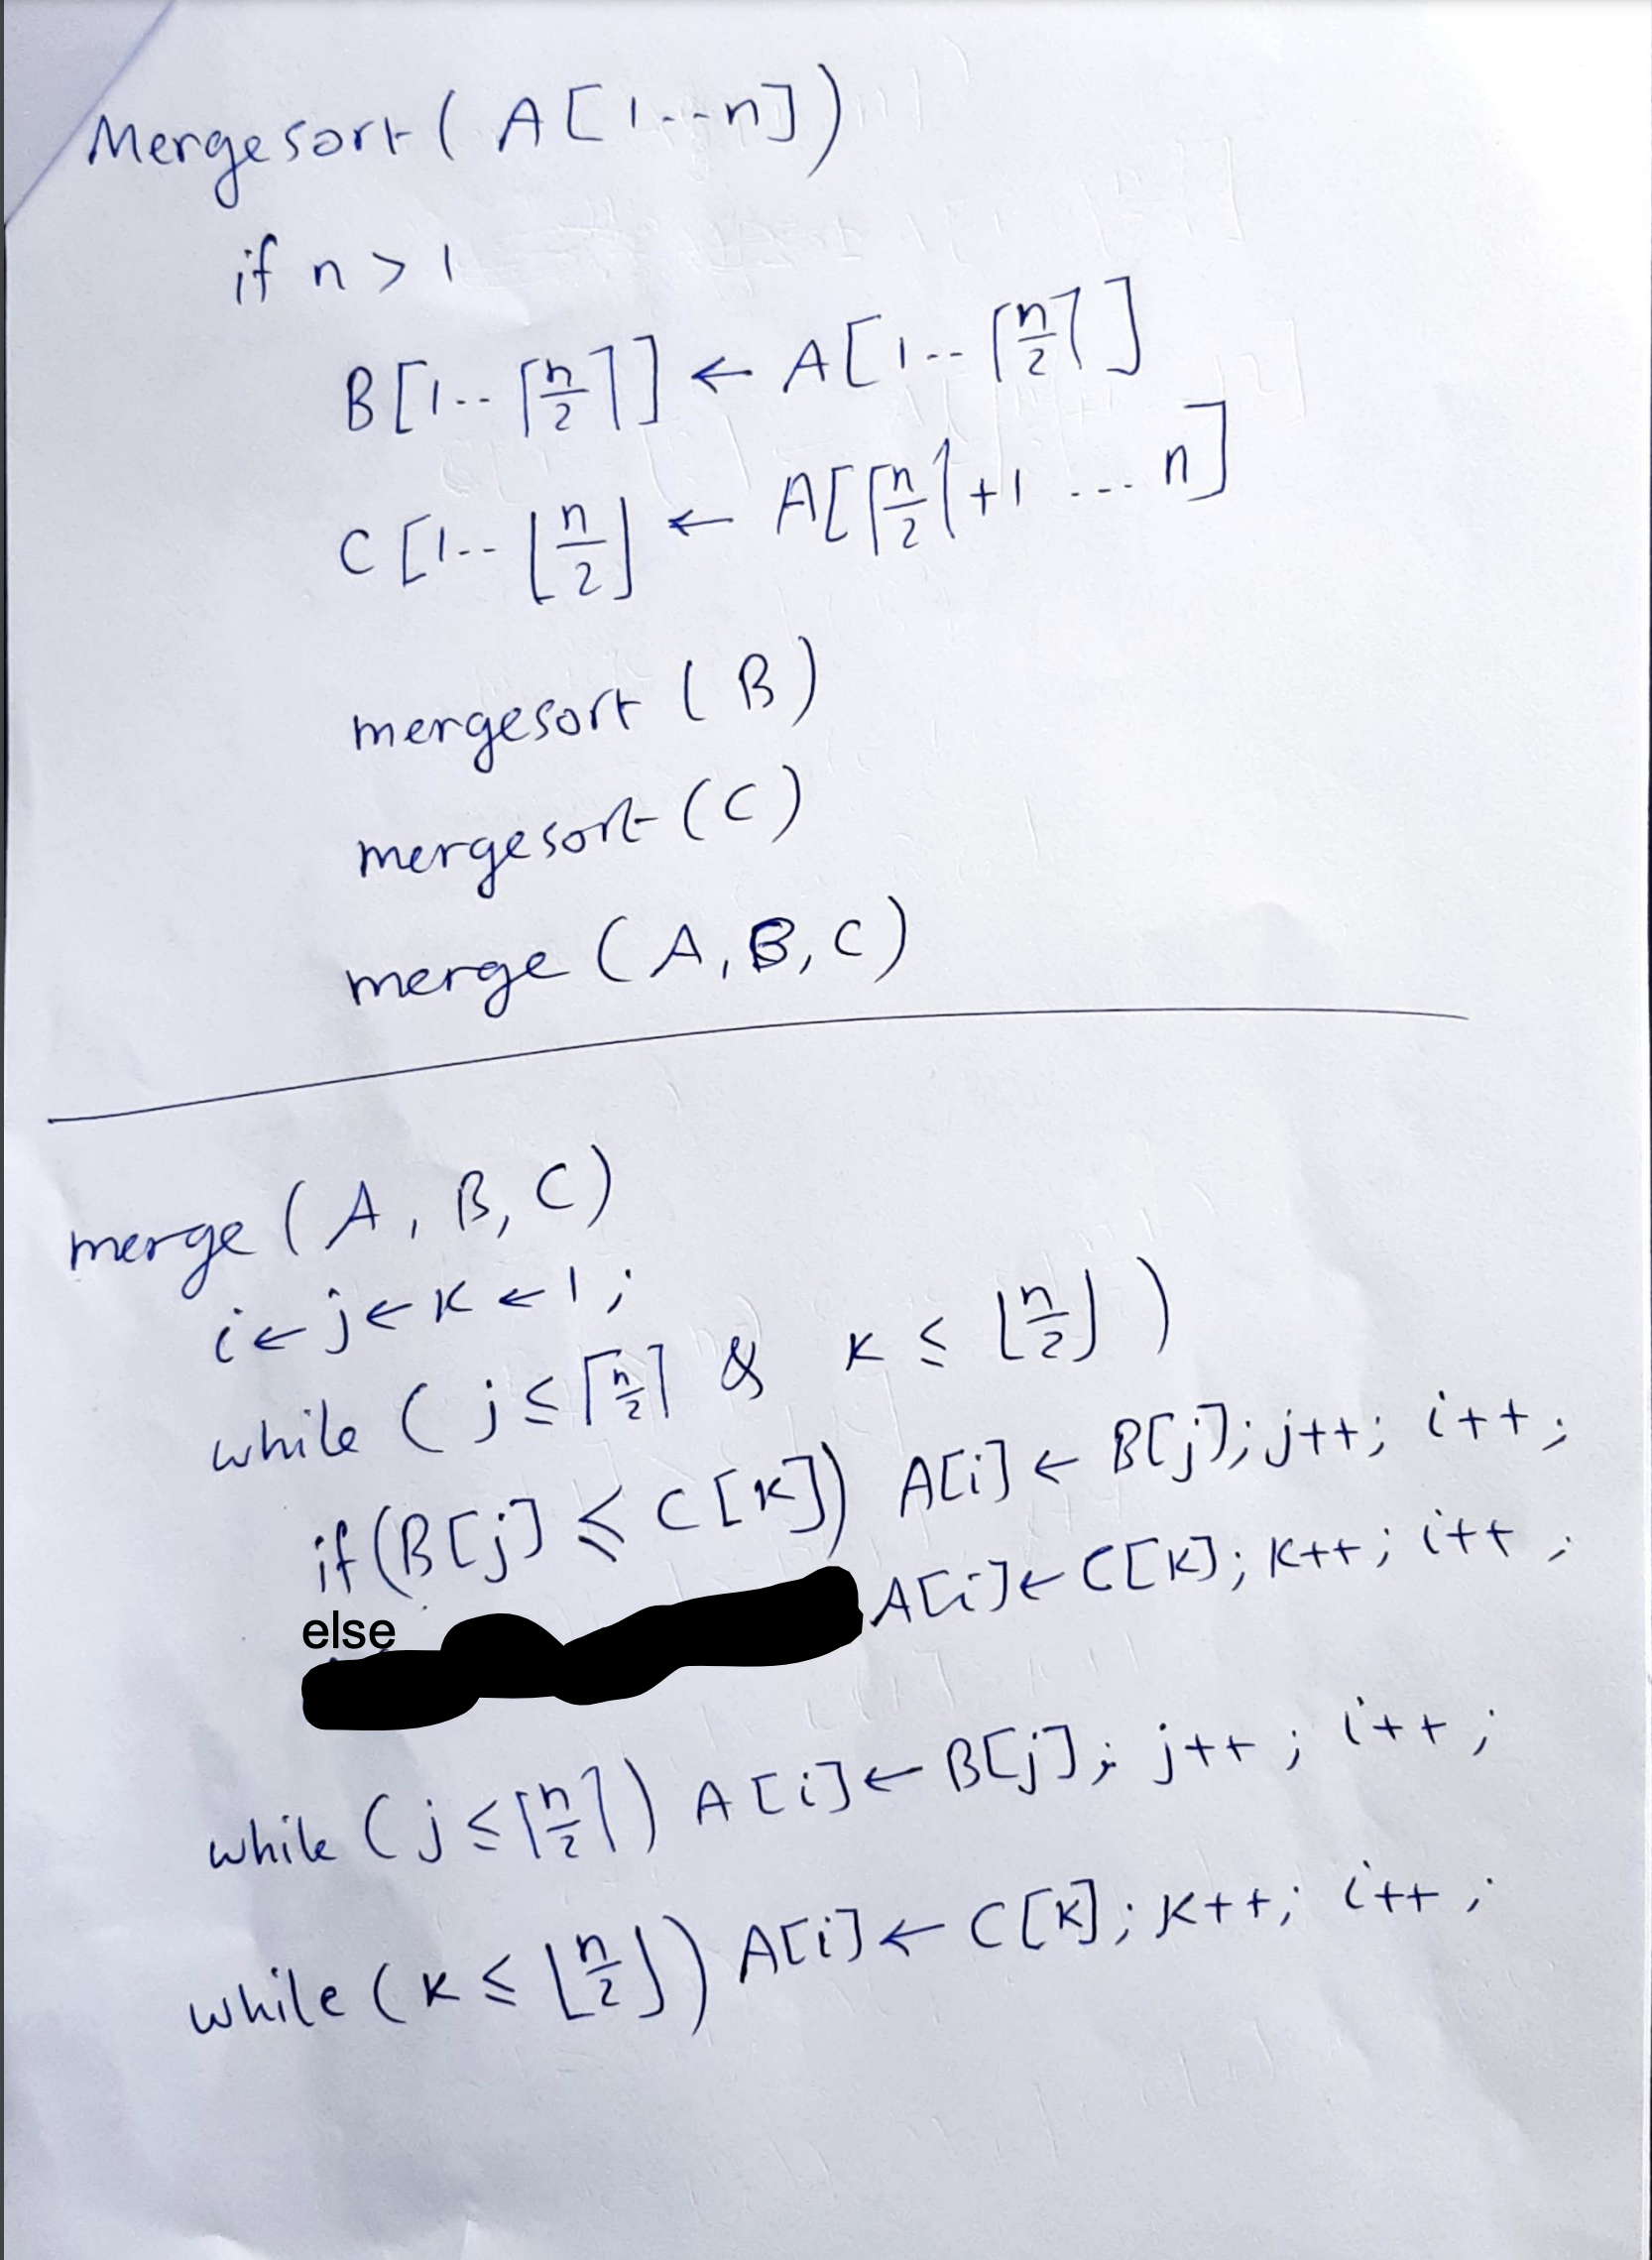 Mergesort ( A [ 1 .. n ] )
if n > 1
B [ 1 .. ⌈n/2⌉ ] ← A [ 1 .. ⌈n/2⌉ ]
C [ 1 .. ⌊n/2⌋ ← A [ ⌈n/2⌉ + 1 ... n ]
mergesort ( B )
mergesort ( C )
merge ( A, B, C )
merge ( A, B, C )
i ← j ← k ← 1 ;
while ( j ≤ ⌈n/2⌉ & k ≤ ⌊n/2⌋ )
if ( B[j] ≤ C[k] ) A[i] ← B[j]; j++; i++;
else A[i] ← C[k]; k++; i++;
while ( j ≤ ⌈n/2⌉ ) A[i] ← B[j]; j++; i++;
while ( k ≤ ⌊n/2⌋ ) A[i] ← C[k]; k++; i++;